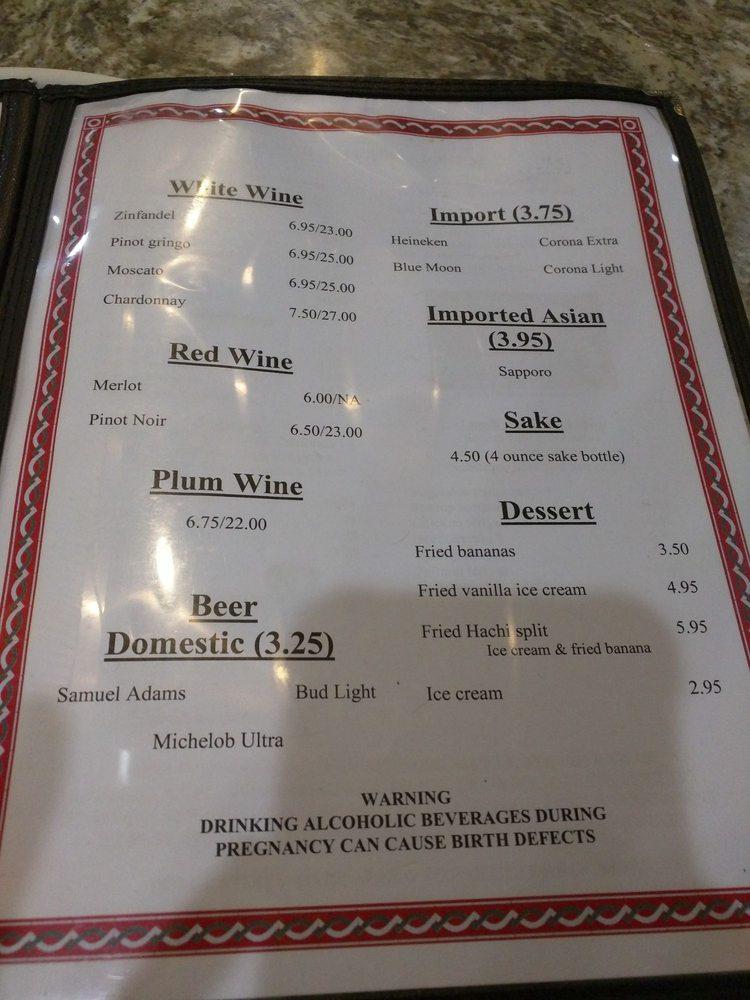 White Wine
Zinfandel 6.95/23.00
Pinot gringo 6.95/25.00
Moscato 6.95/25.00
Chardonnay 7.50/27.00
Red Wine
Merlot 6.00/NA
Pinot Noir 6.50/23.00
Plum Wine
6.75/22.00
Beer
Domestic (3.25)
Samuel Adams Bud Light
Michelob Ultra
Import (3.75)
Heineken Corona Extra
Blue Moon Corona Light
Imported Asian
(3.95)
Sapporo
Sake
4.50 (4 ounce sake bottle)
Dessert
Fried bananas 3.50
Fried vanilla ice cream 4.95
Fried Hachi split 5.95
Ice cream & fried banana
Ice cream 2.95
WARNING
DRINKING ALCOHOLIC BEVERAGES DURING
PREGNANCY CAN CAUSE BIRTH DEFECTS